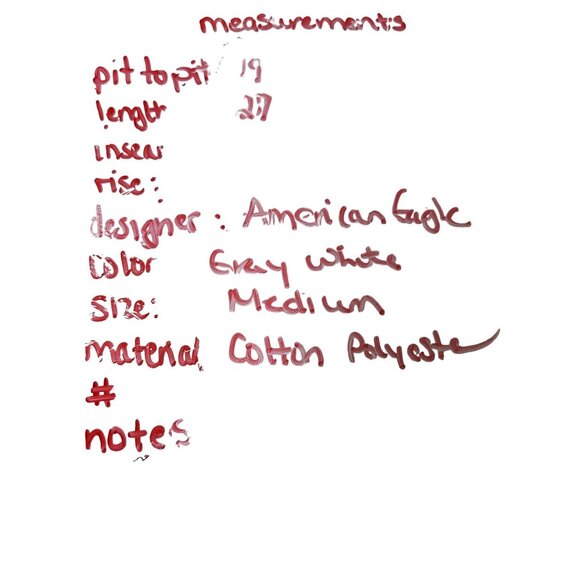 measurements
pit to pit 19
length 27
insea
rise:
designer: American Eagle
color Gray White
size: Medium
material Cotton Polyester
#
notes